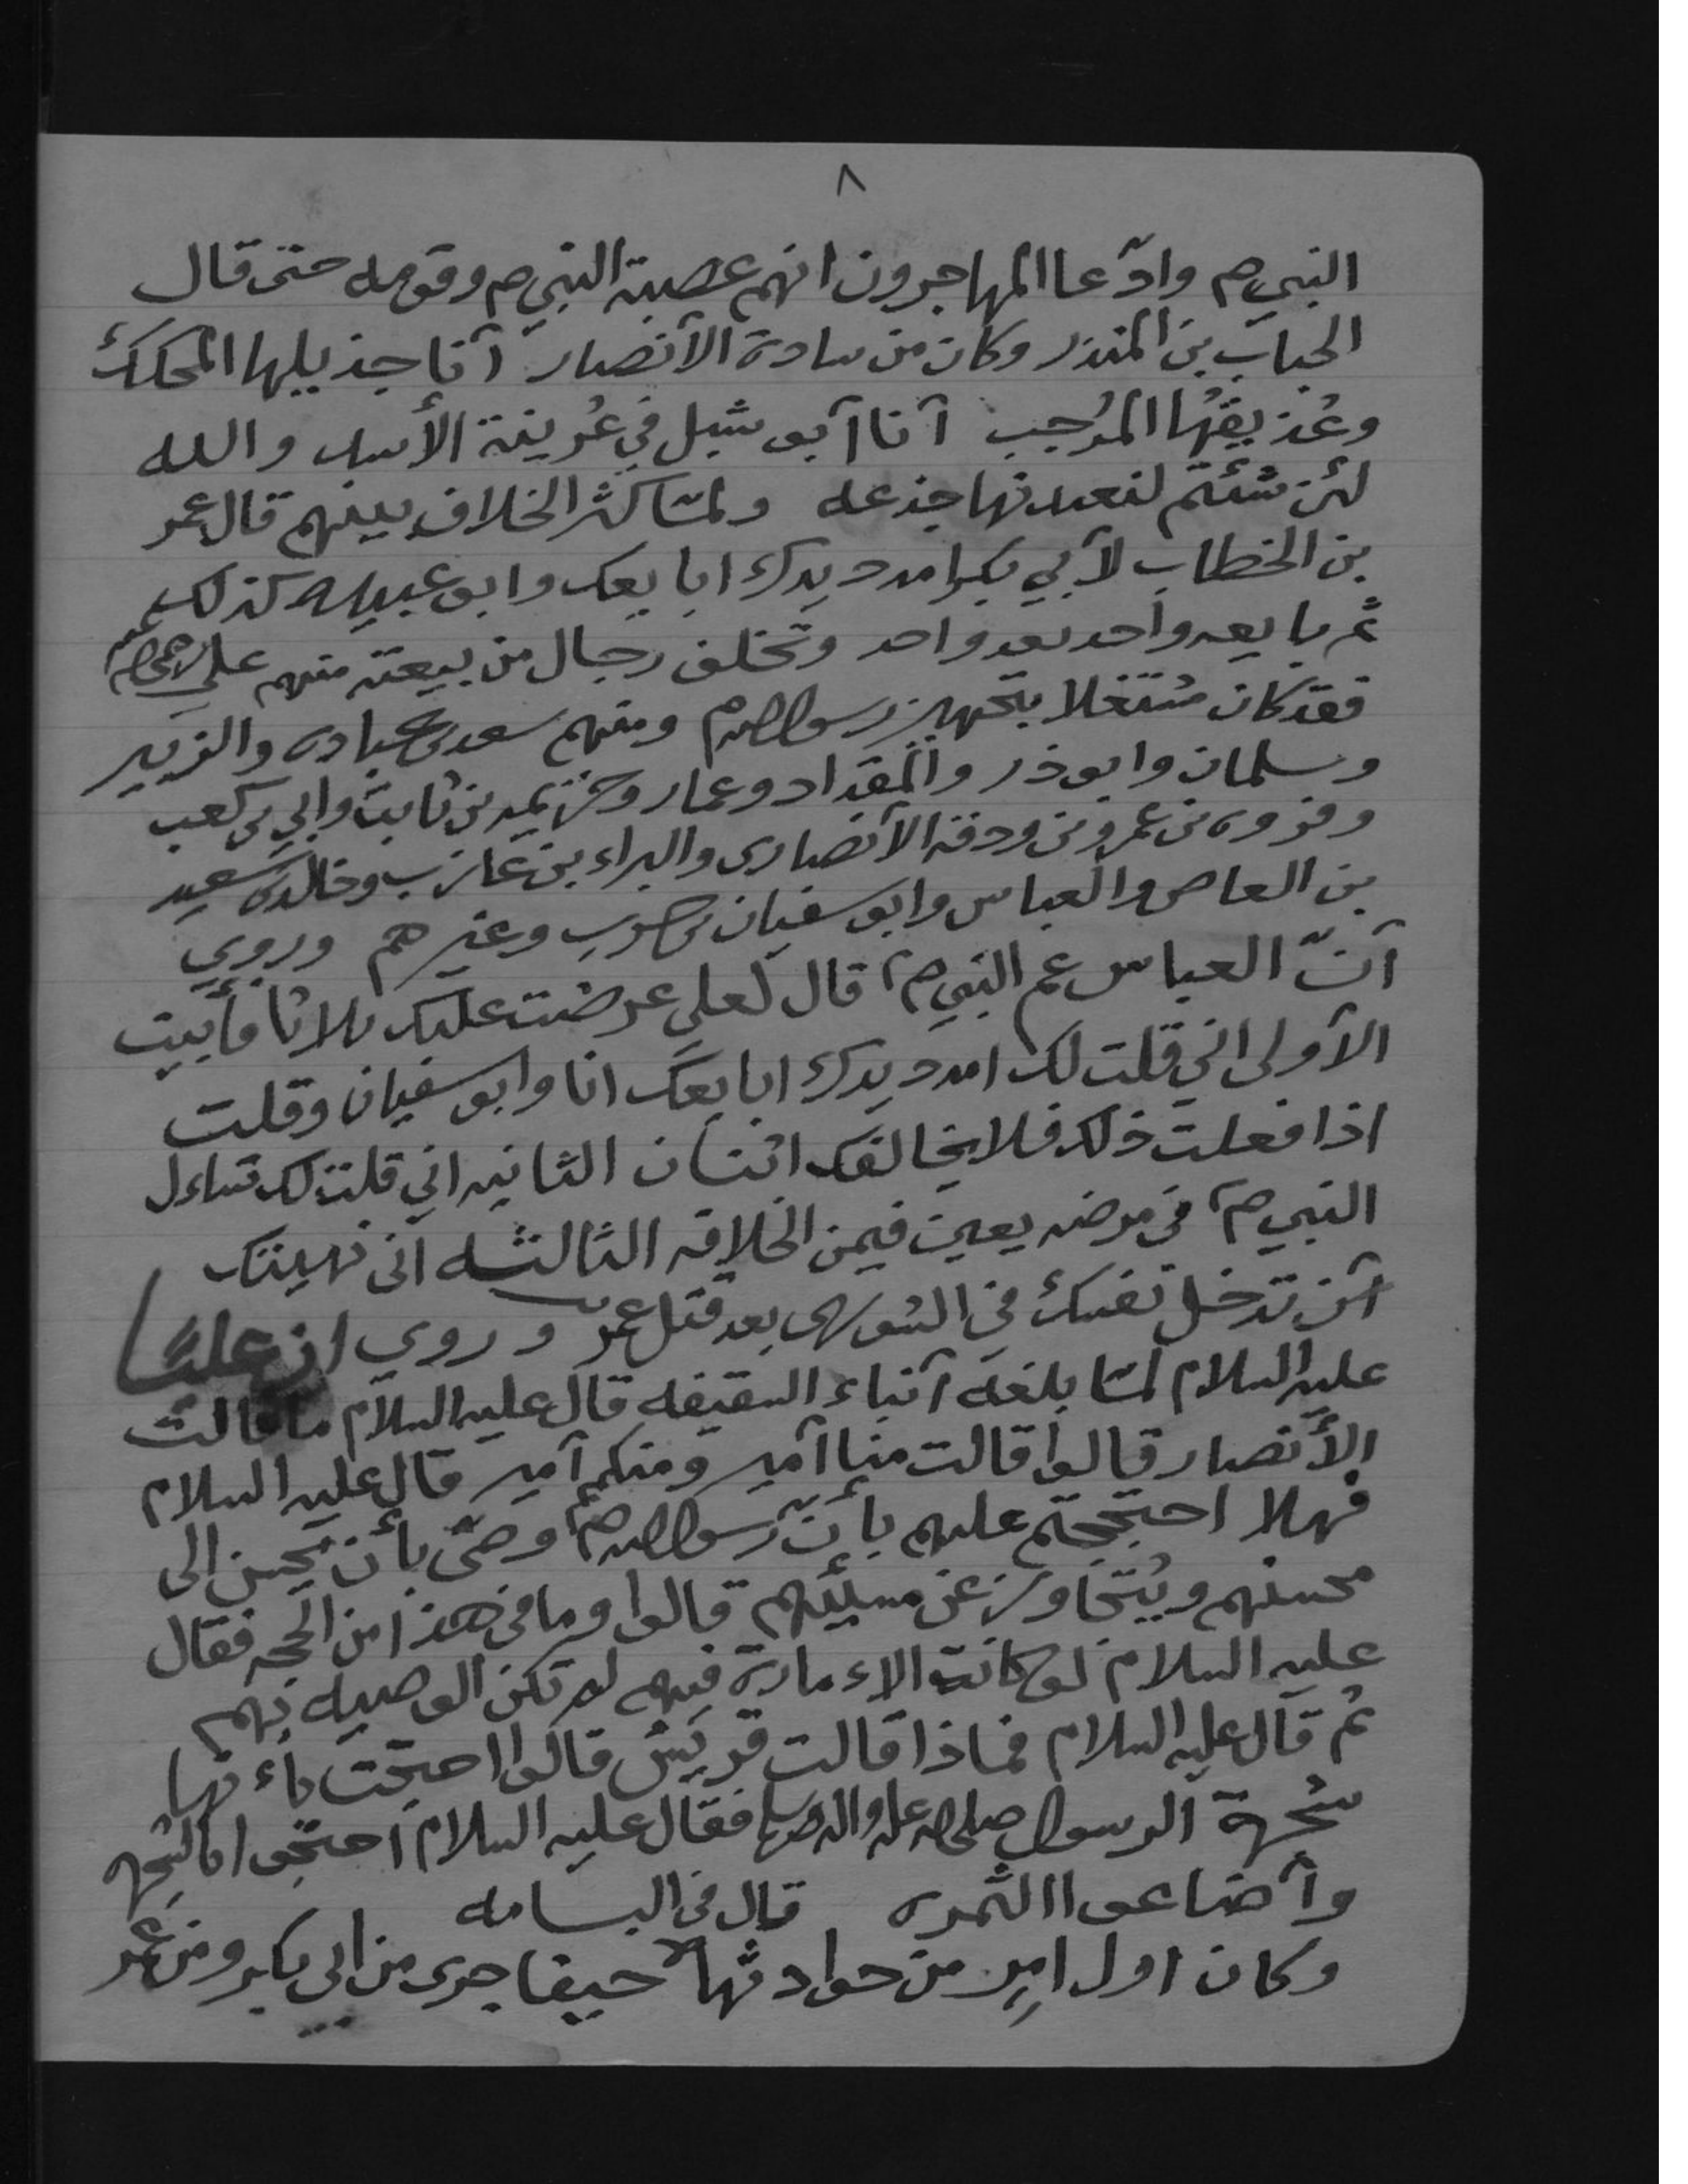 ٨
النبي ص وادّعا المهاجرون انهم عصبة النبي ص وقومه حتى قال
الحباب بن المنذر وكان من سادة الأنصار أنا جذيلها المحكك
وعُذيقها المُرجب أنا أبو شبل في عُرينة الأسد والله
لئن شئتم لنعيدنها جذعه ولمّا كثر الخلاف بينهم قال عمر
بن الخطاب لأبي بكر امدد يدك ابايعك وابو عبيده كذلك
ثم بايعه واحد بعد واحد وتخلف رجال من بيعته منهم علي
فقد كان مشتغلا بتجهيز رسول الله ص ومنهم سعد بن عباده والزبير
وسلمان وابو ذر والمقداد وعمار وخزيمه بن ثابت وابي بن كعب
وفروه بن عمرو بن ودقه الأنصاري والبراء بن عازب وخالد بن سعيد
بن العاص والعباس وابو سفيان بن حرب وغيرهم وروي
أنّ العباس عم النبي ص قال لعلي عرضت عليك ثلاثا فأبيت
الأولى اني قلت لك امدد يدك ابايعك انا وابو سفيان وقلت
اذا فعلت ذلك فلا يخالفك اثنان الثانيه اني قلت لك تساءل
النبي ص في مرضه يعين فيمن الخلافه الثالثه اني نهيتك
أن تدخل نفسك في الشورى بعد قتل عمر وروي ان عليًا
عليه السلام لمّا بلغه أنباء السقيفه قال عليه السلام ما قالت
الأنصار قالوا قالت منا أمير ومنكم أمير قال عليه السلام
فهلا احتججتم عليهم بأنّ رسول الله ص وصّى بأن يُحسن الى
محسنهم ويُتجاوز عن مسيئهم قالوا وما في هذا من الحجه فقال
عليه السلام لو كانت الإمارة فيهم لم تكن الوصيه بهم
ثم قال عليه السلام فماذا قالت قريش قالوا احتجت بأنها
شجرة الرسول صلى الله عليه واله وسلم فقال عليه السلام احتجوا بالشجره
وأضاعوا الثمره قال في البسامه
وكان اول امرٍ من حوادثها حيفا جرى من ابي بكر ومن عمر